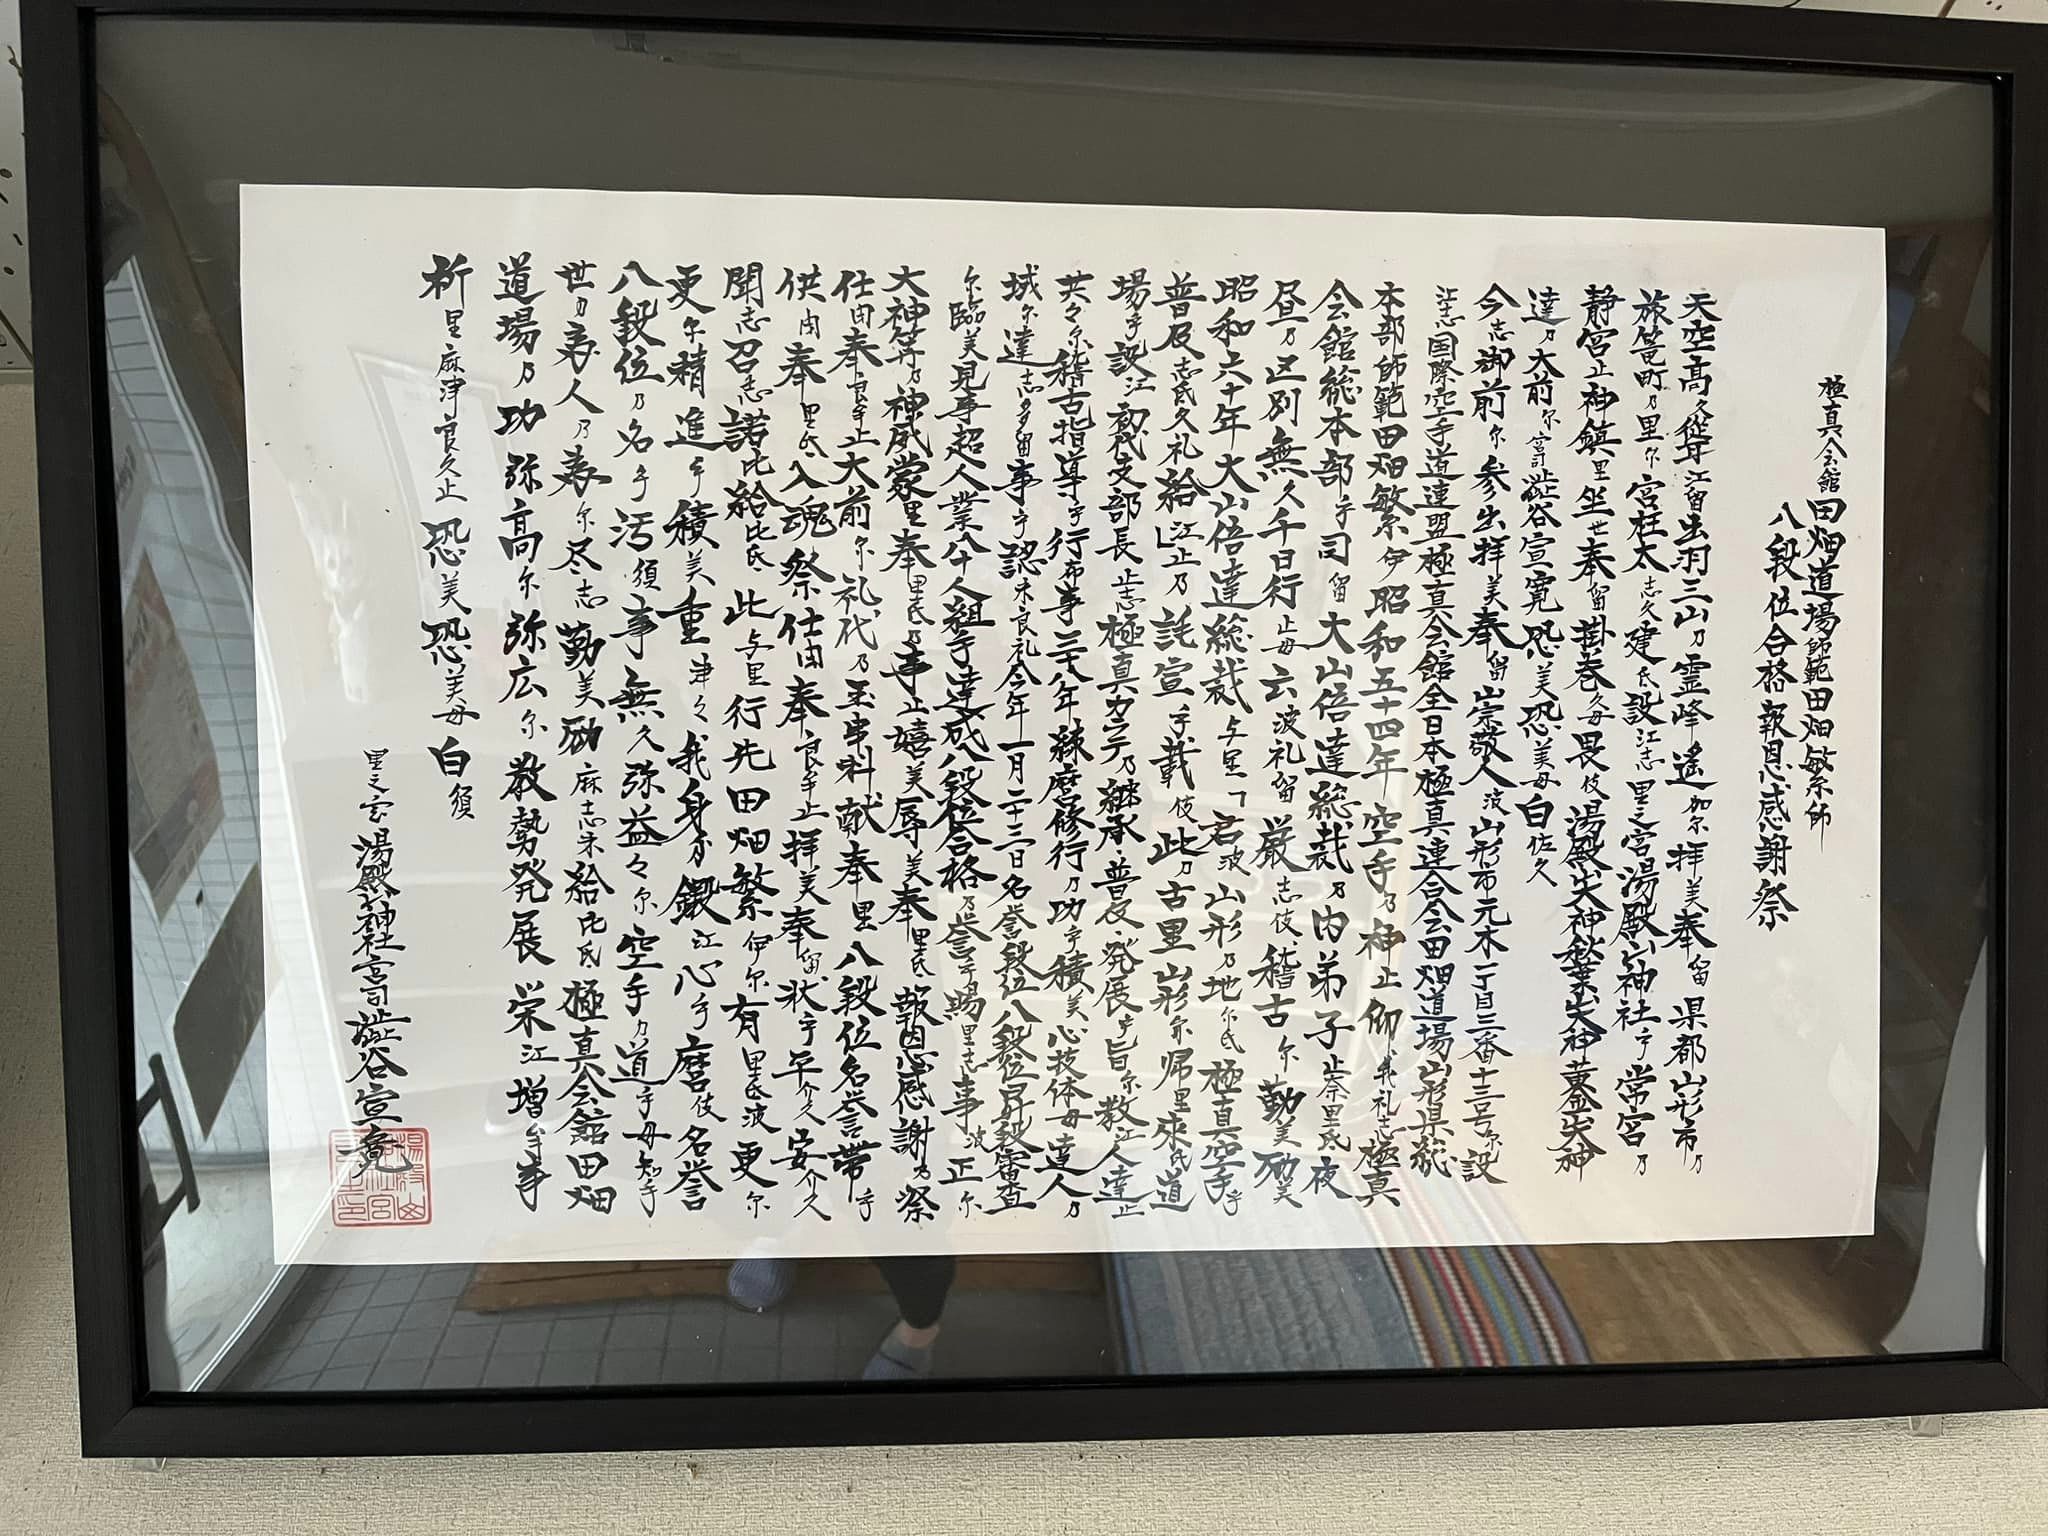 極真会館田畑道場師範田畑繁師
八段位合格報恩感謝祭
天空高久聳江留出羽三山乃霊峰遥加尓拝美奉留県都山形市乃
旅篭町乃里尓宮柱太志久建氐設江志里之宮湯殿山神社乎常宮乃
静宮止神鎮里坐世奉留掛巻久毋畏伎湯殿山大神秋葉山大神薬山大神
達乃大前尓宮司澁谷宣寛恐美恐美毋白佐久
今志御前尓参出拝美奉留崇敬人波山形市元木一丁目三番十三号尓設
志国際空手道連盟極真会館全日本極真連合会田畑道場山形県総
本部師範田畑繁伊昭和五十四年空手乃神止仰我礼志極真
会館総本部乎司留大山倍達総裁乃内弟子止奈里氐夜
昼乃区別無久千日行止毋云波礼留厳志伎稽古尓勤美励美
昭和六十年大山倍達総裁与里「君波山形乃地尓氐極真空手乎
普及志氐久礼給江」止乃託宣乎載伎此乃古里山形尓帰里来氐道
場乎設江初代支部長止志極真カラテ乃継承普及発展乎旨尓教江人達止
共々尓稽古指導乎行布事三十八年錬磨修行乃功乎積美心技体毋達人乃
域尓達志多留事乎認米良礼今年一月二十三日名誉段位八段位昇段審査
尓臨美見事超人業八十人組手達成八段位合格乃誉乎賜里志事波正尓
大神等乃神威蒙里奉里氐乃事止嬉美辱美奉里氐報恩感謝乃祭
仕由奉良牟止大前尓礼代乃玉串料献奉里八段位名誉帯乎
供由奉里氐入魂祭仕由奉良牟止拝美奉留状乎平介久安介久
聞志召志諾比給比氐此与里行先田畑繁伊尓有里氐波更尓
更尓精進乎積美重津々我身乎鍛江心乎磨伎名誉
八段位乃名乎汚須事無久弥益々尓空手乃道乎毋知乎
世乃為人乃為尓尽志勤美励麻志米給比氐極真会館田畑
道場乃功弥高尓弥広尓教勢発展栄江増牟事
祈里麻津良久止恐美恐美毋白須
里之宮湯殿山神社宮司澁谷宣寛